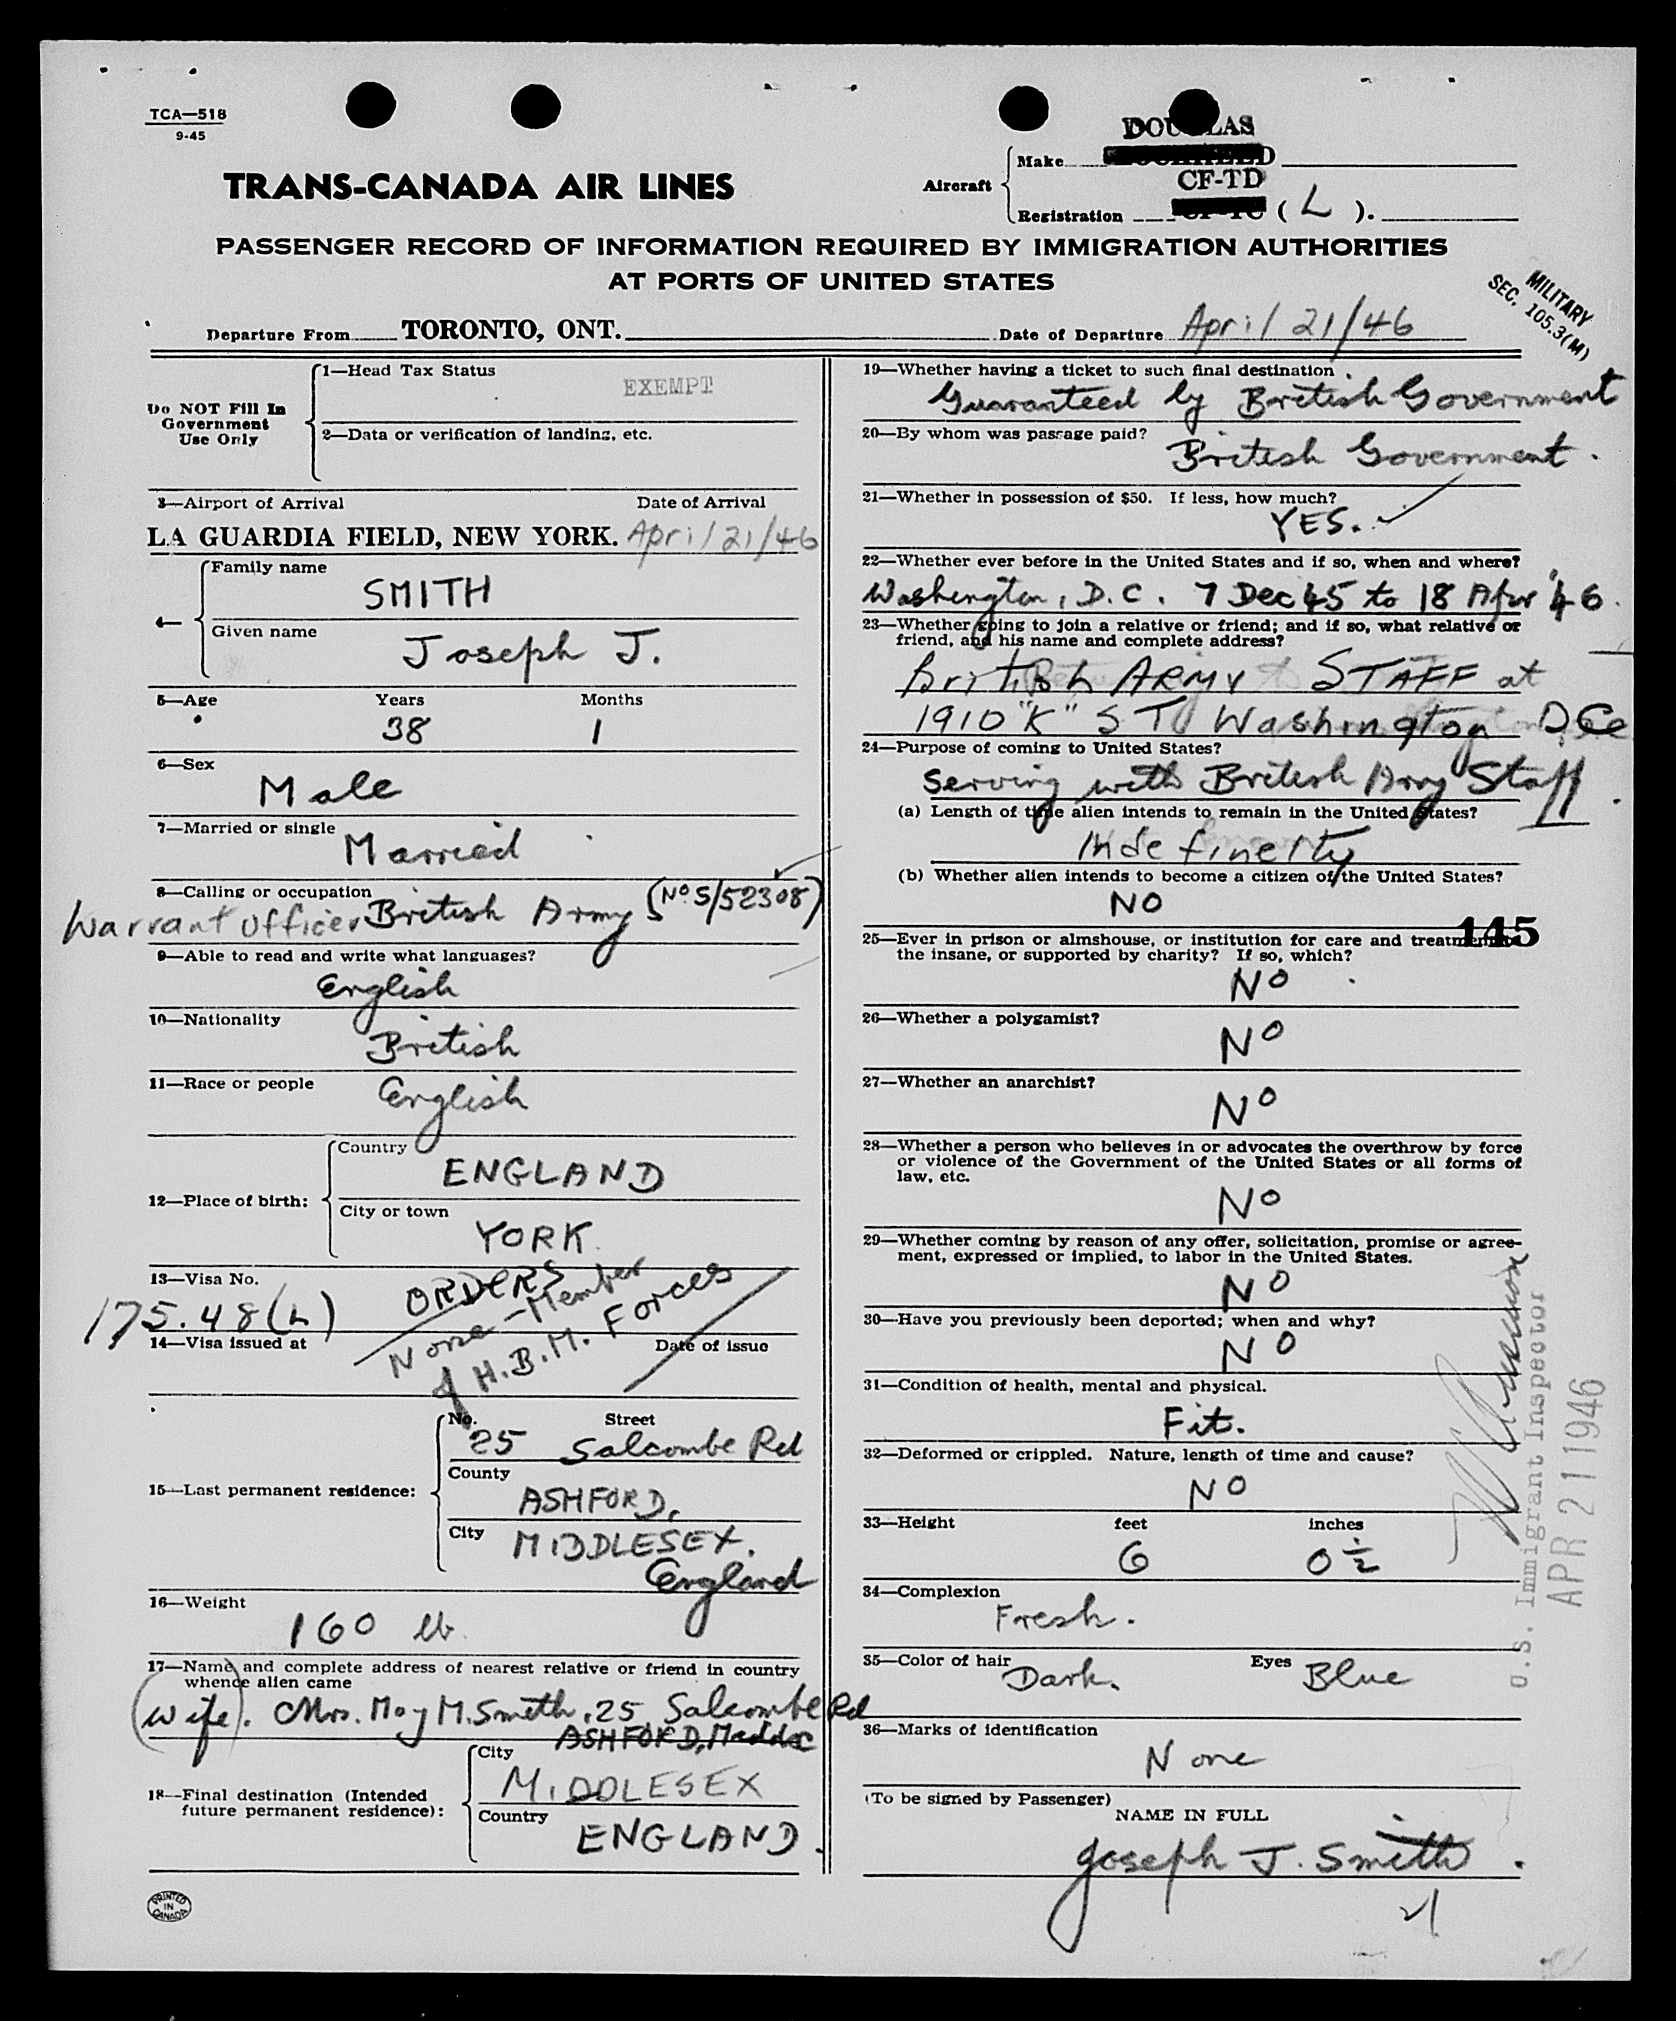 TCA—518
9-45
TRANS-CANADA AIR LINES
Aircraft
Make
DOUGLAS
CF-TD
Registration ( L ).
PASSENGER RECORD OF INFORMATION REQUIRED BY IMMIGRATION AUTHORITIES
AT PORTS OF UNITED STATES
MILITARY
SEC. 105.3(M)
Departure From TORONTO, ONT. Date of Departure April 21/46
Do NOT Fill In
Government
Use Only
1—Head Tax Status
EXEMPT
2—Data or verification of landing, etc.
3—Airport of Arrival Date of Arrival
LA GUARDIA FIELD, NEW YORK. April 21/46
4—
Family name
SMITH
Given name
Joseph J.
5—Age Years Months
38 1
6—Sex
Male
7—Married or single
Married
8—Calling or occupation
Warrant Officer British Army (No S/52308)
9—Able to read and write what languages?
English
10—Nationality
British
11—Race or people
English
12—Place of birth:
Country
ENGLAND
City or town
YORK
13—Visa No.
175.48(L)
ORDERS
None - Member
of H.B.M. Forces
14—Visa issued at Date of issue
15—Last permanent residence:
No. Street
25 Salcombe Rd
County
ASHFORD,
City
MIDDLESEX.
England
16—Weight
160 lb.
17—Name and complete address of nearest relative or friend in country
whence alien came
(wife). Mrs. May M. Smith, 25 Salcombe Rd
ASHFORD, Middx
18—Final destination (Intended
future permanent residence):
City
MIDDLESEX
Country
ENGLAND.
PRINTED
IN
CANADA
19—Whether having a ticket to such final destination
Guaranteed by British Government
20—By whom was passage paid?
British Government.
21—Whether in possession of $50. If less, how much?
YES.
22—Whether ever before in the United States and if so, when and where?
Washington, D.C. 7 Dec 45 to 18 Apr '46.
23—Whether going to join a relative or friend; and if so, what relative or
friend, and his name and complete address?
British ARMY STAFF at
1910 "K" ST Washington D.C.
24—Purpose of coming to United States?
Serving with British Army Staff.
(a) Length of time alien intends to remain in the United States?
Indefinelty
(b) Whether alien intends to become a citizen of the United States?
NO
145
25—Ever in prison or almshouse, or institution for care and treatment
the insane, or supported by charity? If so, which?
NO
26—Whether a polygamist?
NO
27—Whether an anarchist?
NO
28—Whether a person who believes in or advocates the overthrow by force
or violence of the Government of the United States or all forms of
law, etc.
NO
29—Whether coming by reason of any offer, solicitation, promise or agree-
ment, expressed or implied, to labor in the United States.
NO
30—Have you previously been deported; when and why?
NO
31—Condition of health, mental and physical.
Fit.
32—Deformed or crippled. Nature, length of time and cause?
NO
33—Height feet inches
6 0 ½
34—Complexion
Fresh.
35—Color of hair Eyes
Dark. Blue
36—Marks of identification
None
U.S. Immigrant Inspector
APR 21 1946
(To be signed by Passenger)
NAME IN FULL
Joseph J. Smith.